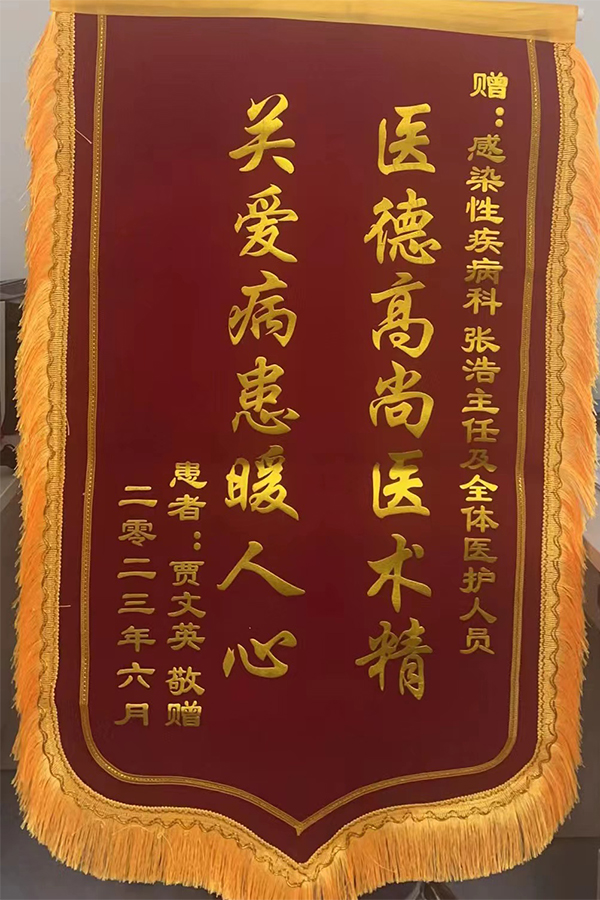 赠：感染性疾病科 张浩主任及全体医护人员
医德高尚医术精
关爱病患暖人心
患者：贾文英 敬赠
二零二三年六月